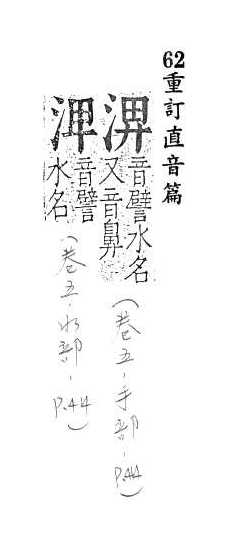 62重訂直音篇
淠音譬水名又音鼻
（卷五－手部－P.44）
渒音譬水名
（卷五－水部－P.44）